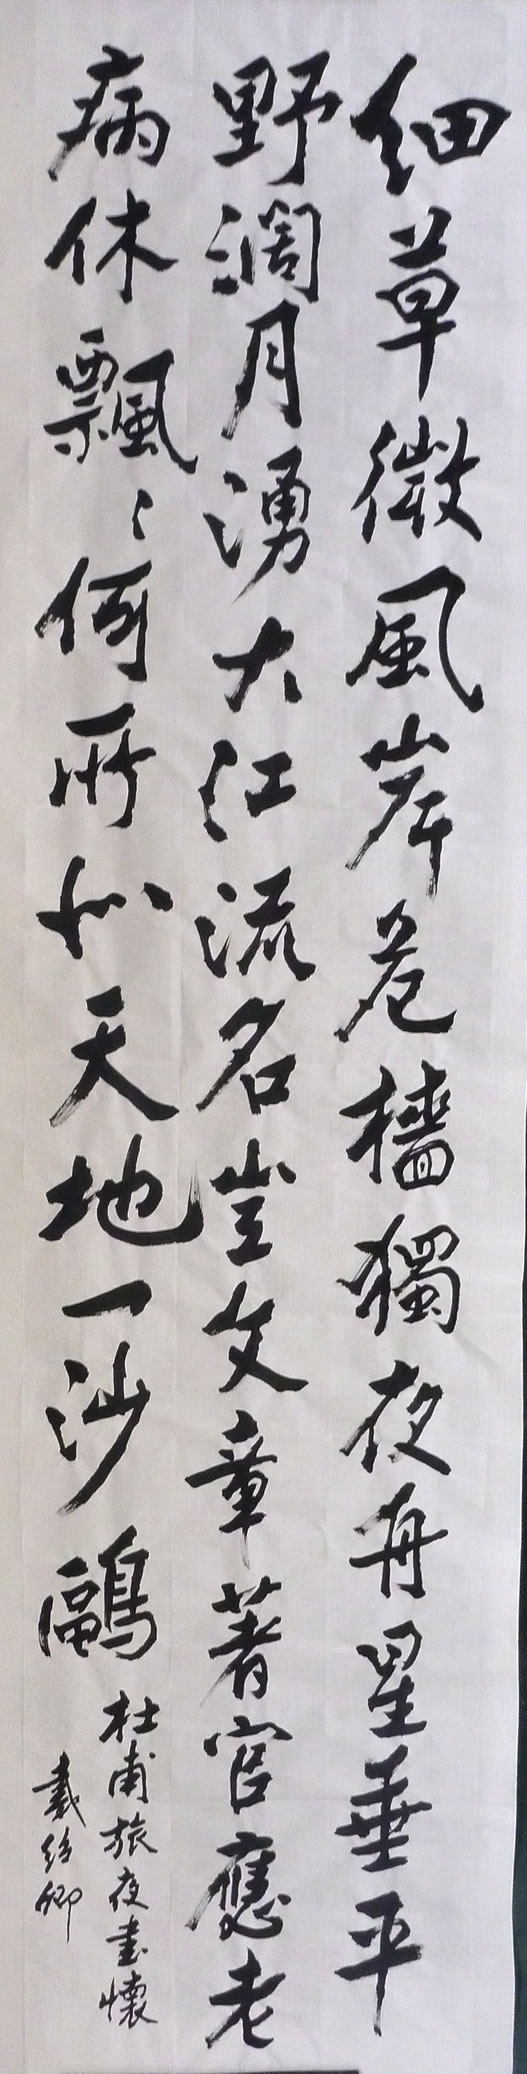 细草微風岸危檣獨夜舟星垂平
野濶月湧大江流名豈文章著官應老
病休飄〻何所似天地一沙鷗
杜甫旅夜書懷
戴紹卿